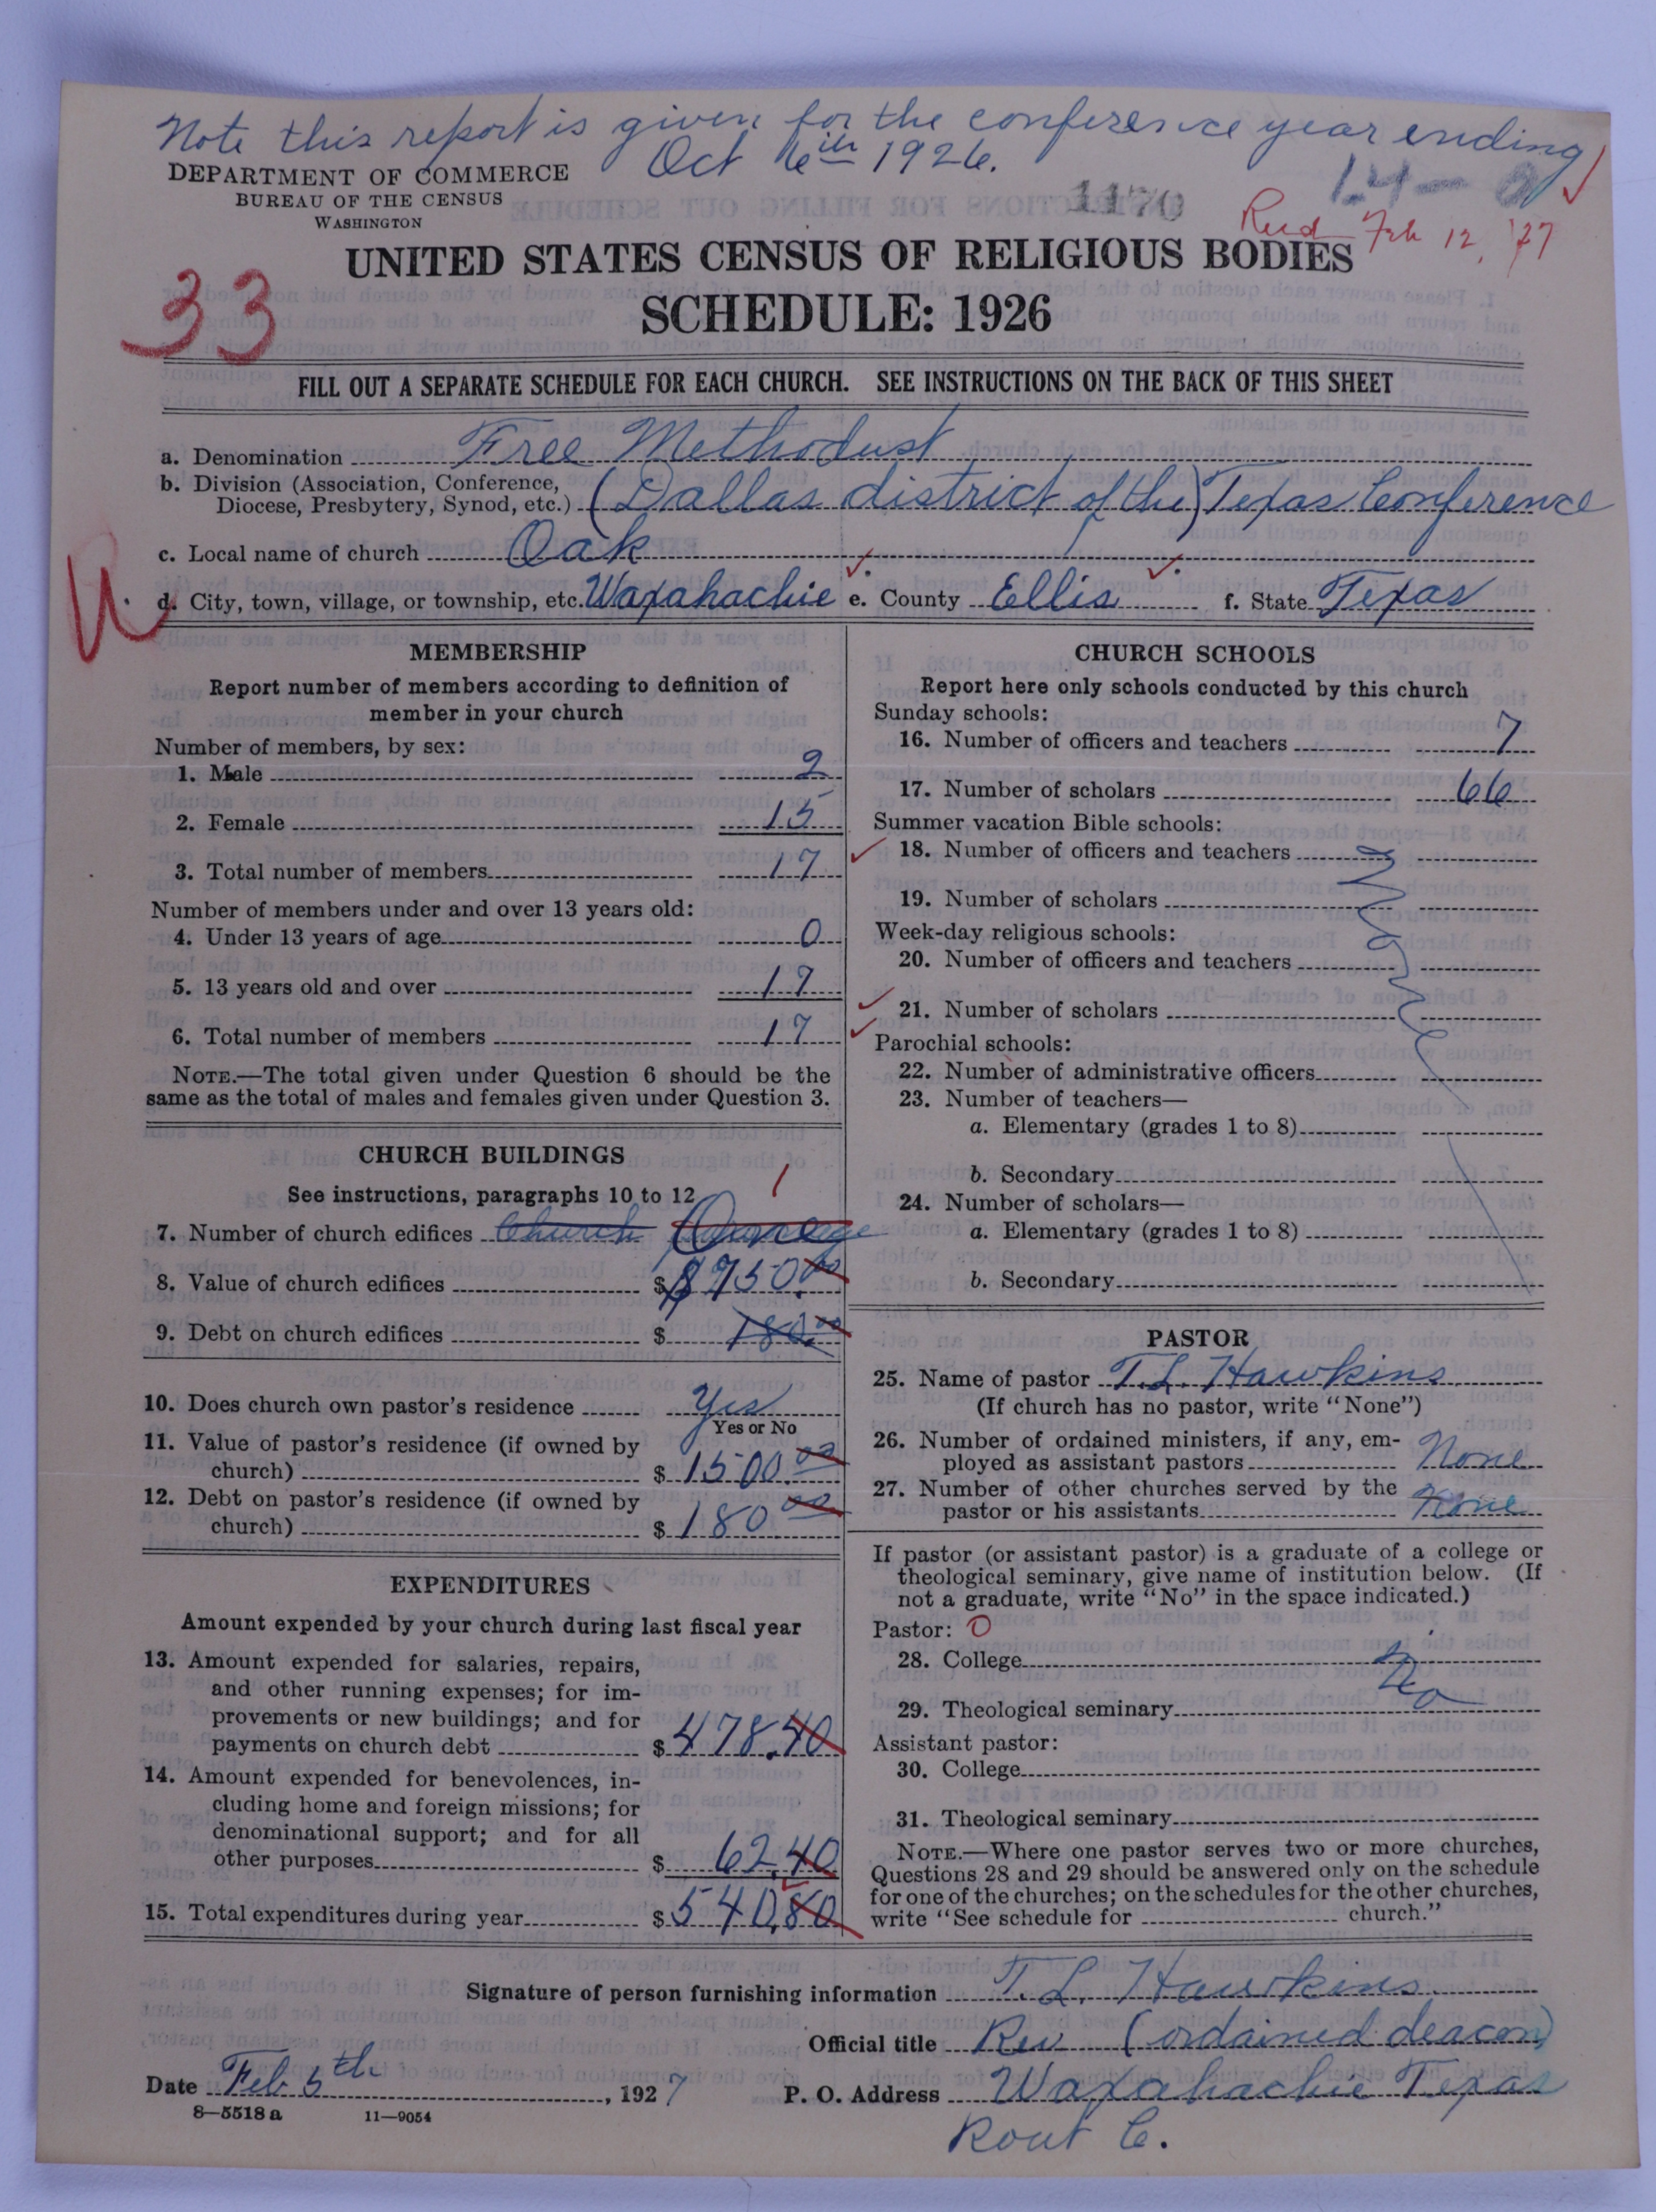 Note this report is given for the conference year ending
Oct 6th 1926.
DEPARTMENT OF COMMERCE
BUREAU OF THE CENSUS
WASHINGTON
1170
14-
Recd Feb 12, '27
UNITED STATES CENSUS OF RELIGIOUS BODIES
SCHEDULE: 1926
33
FILL OUT A SEPARATE SCHEDULE FOR EACH CHURCH. SEE INSTRUCTIONS ON THE BACK OF THIS SHEET
a. Denomination Free Methodist
b. Division (Association, Conference,
Diocese, Presbytery, Synod, etc.) (Dallas district of the) Texas Conference
c. Local name of church Oak
d. City, town, village, or township, etc. Waxahachie e. County Ellis f. State Texas
U.
MEMBERSHIP
Report number of members according to definition of
member in your church
Number of members, by sex:
1. Male 2
2. Female 15
3. Total number of members 17
Number of members under and over 13 years old:
4. Under 13 years of age 0
5. 13 years old and over 17
6. Total number of members 17
NOTE.—The total given under Question 6 should be the
same as the total of males and females given under Question 3.
CHURCH BUILDINGS
See instructions, paragraphs 10 to 12
1
7. Number of church edifices Church
8. Value of church edifices $ $750.00
9. Debt on church edifices $ 180.00
10. Does church own pastor's residence Yes
Yes or No
11. Value of pastor's residence (if owned by
church) $ 1500.00
12. Debt on pastor's residence (if owned by
church) $ 180.00
EXPENDITURES
Amount expended by your church during last fiscal year
13. Amount expended for salaries, repairs,
and other running expenses; for im-
provements or new buildings; and for
payments on church debt $ 478.40
14. Amount expended for benevolences, in-
cluding home and foreign missions; for
denominational support; and for all
other purposes $ 62.40
15. Total expenditures during year $ 540.80
CHURCH SCHOOLS
Report here only schools conducted by this church
Sunday schools:
16. Number of officers and teachers 7
17. Number of scholars 66
Summer vacation Bible schools:
18. Number of officers and teachers
19. Number of scholars
Week-day religious schools:
20. Number of officers and teachers
21. Number of scholars
Parochial schools:
22. Number of administrative officers
23. Number of teachers—
a. Elementary (grades 1 to 8)
b. Secondary
24. Number of scholars—
a. Elementary (grades 1 to 8)
b. Secondary
PASTOR
25. Name of pastor T.L. Hawkins
(If church has no pastor, write "None")
26. Number of ordained ministers, if any, em-
ployed as assistant pastors None
27. Number of other churches served by the
pastor or his assistants None
If pastor (or assistant pastor) is a graduate of a college or
theological seminary, give name of institution below. (If
not a graduate, write "No" in the space indicated.)
Pastor: 0
28. College
No
29. Theological seminary
Assistant pastor:
30. College
31. Theological seminary
NOTE.—Where one pastor serves two or more churches,
Questions 28 and 29 should be answered only on the schedule
for one of the churches; on the schedules for the other churches,
write "See schedule for church."
Signature of person furnishing information T. L. Hawkins
Official title Rev (ordained deacon)
Date Feb 5th, 1927 P. O. Address Waxahachie Texas
8—5518a 11—9054
Rout 6.